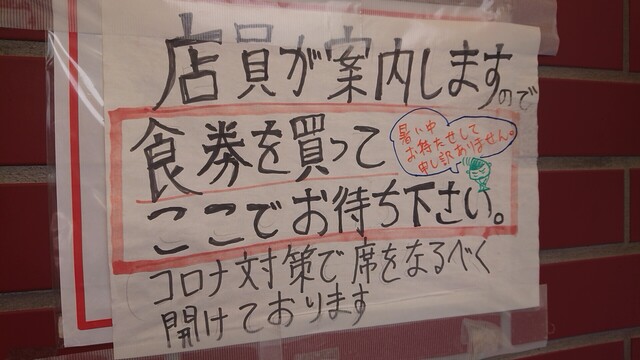 店員が案内しますので
食券を買って
ここでお待ち下さい。
暑い中
お待たせして
申し訳ありません。
コロナ対策で席をなるべく
開けております